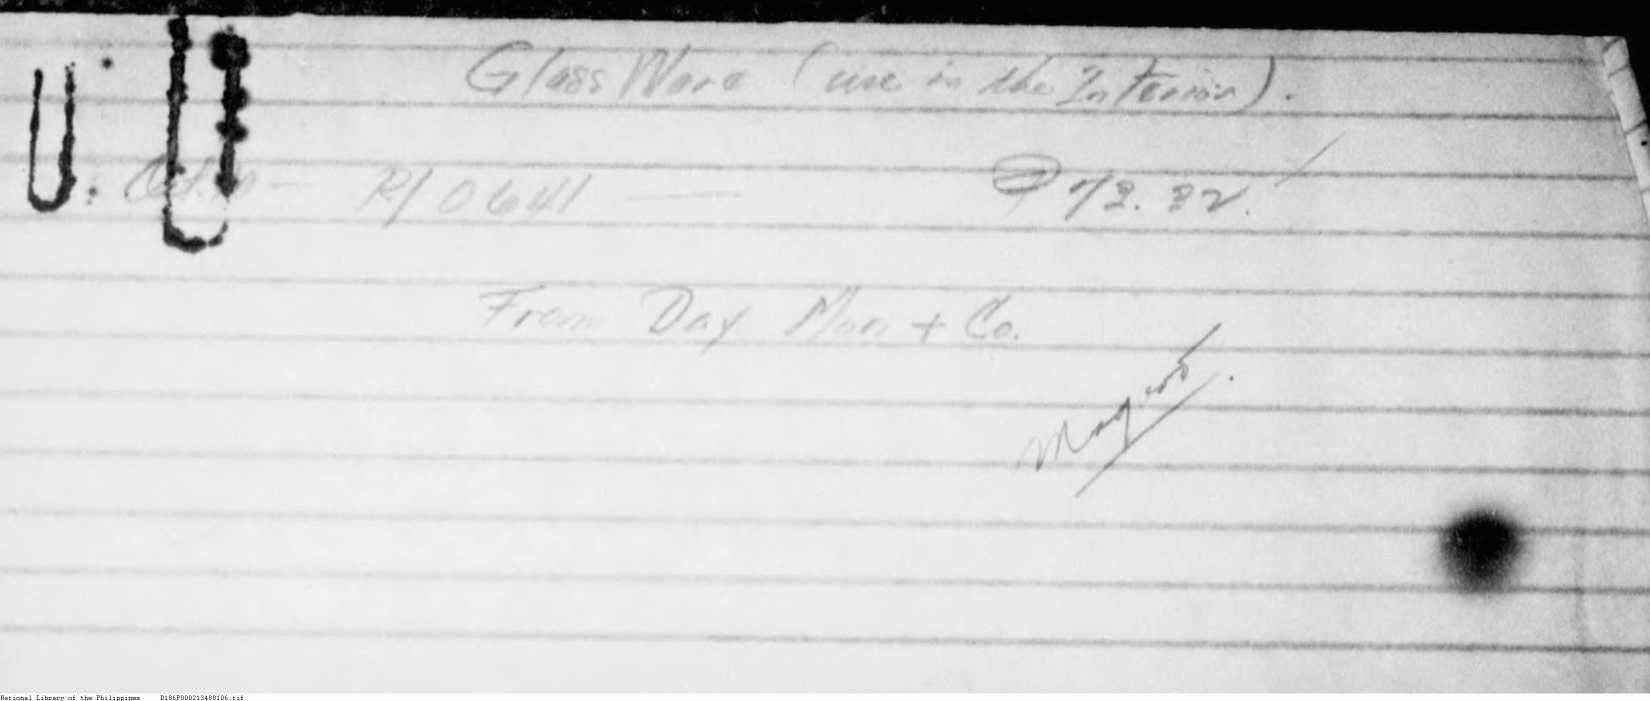 Glass Ware (use in the Interior).
R/ 0641 — 72.32.
From Day Man + Co.
National Library of the Philippines D186P000213480106.tif